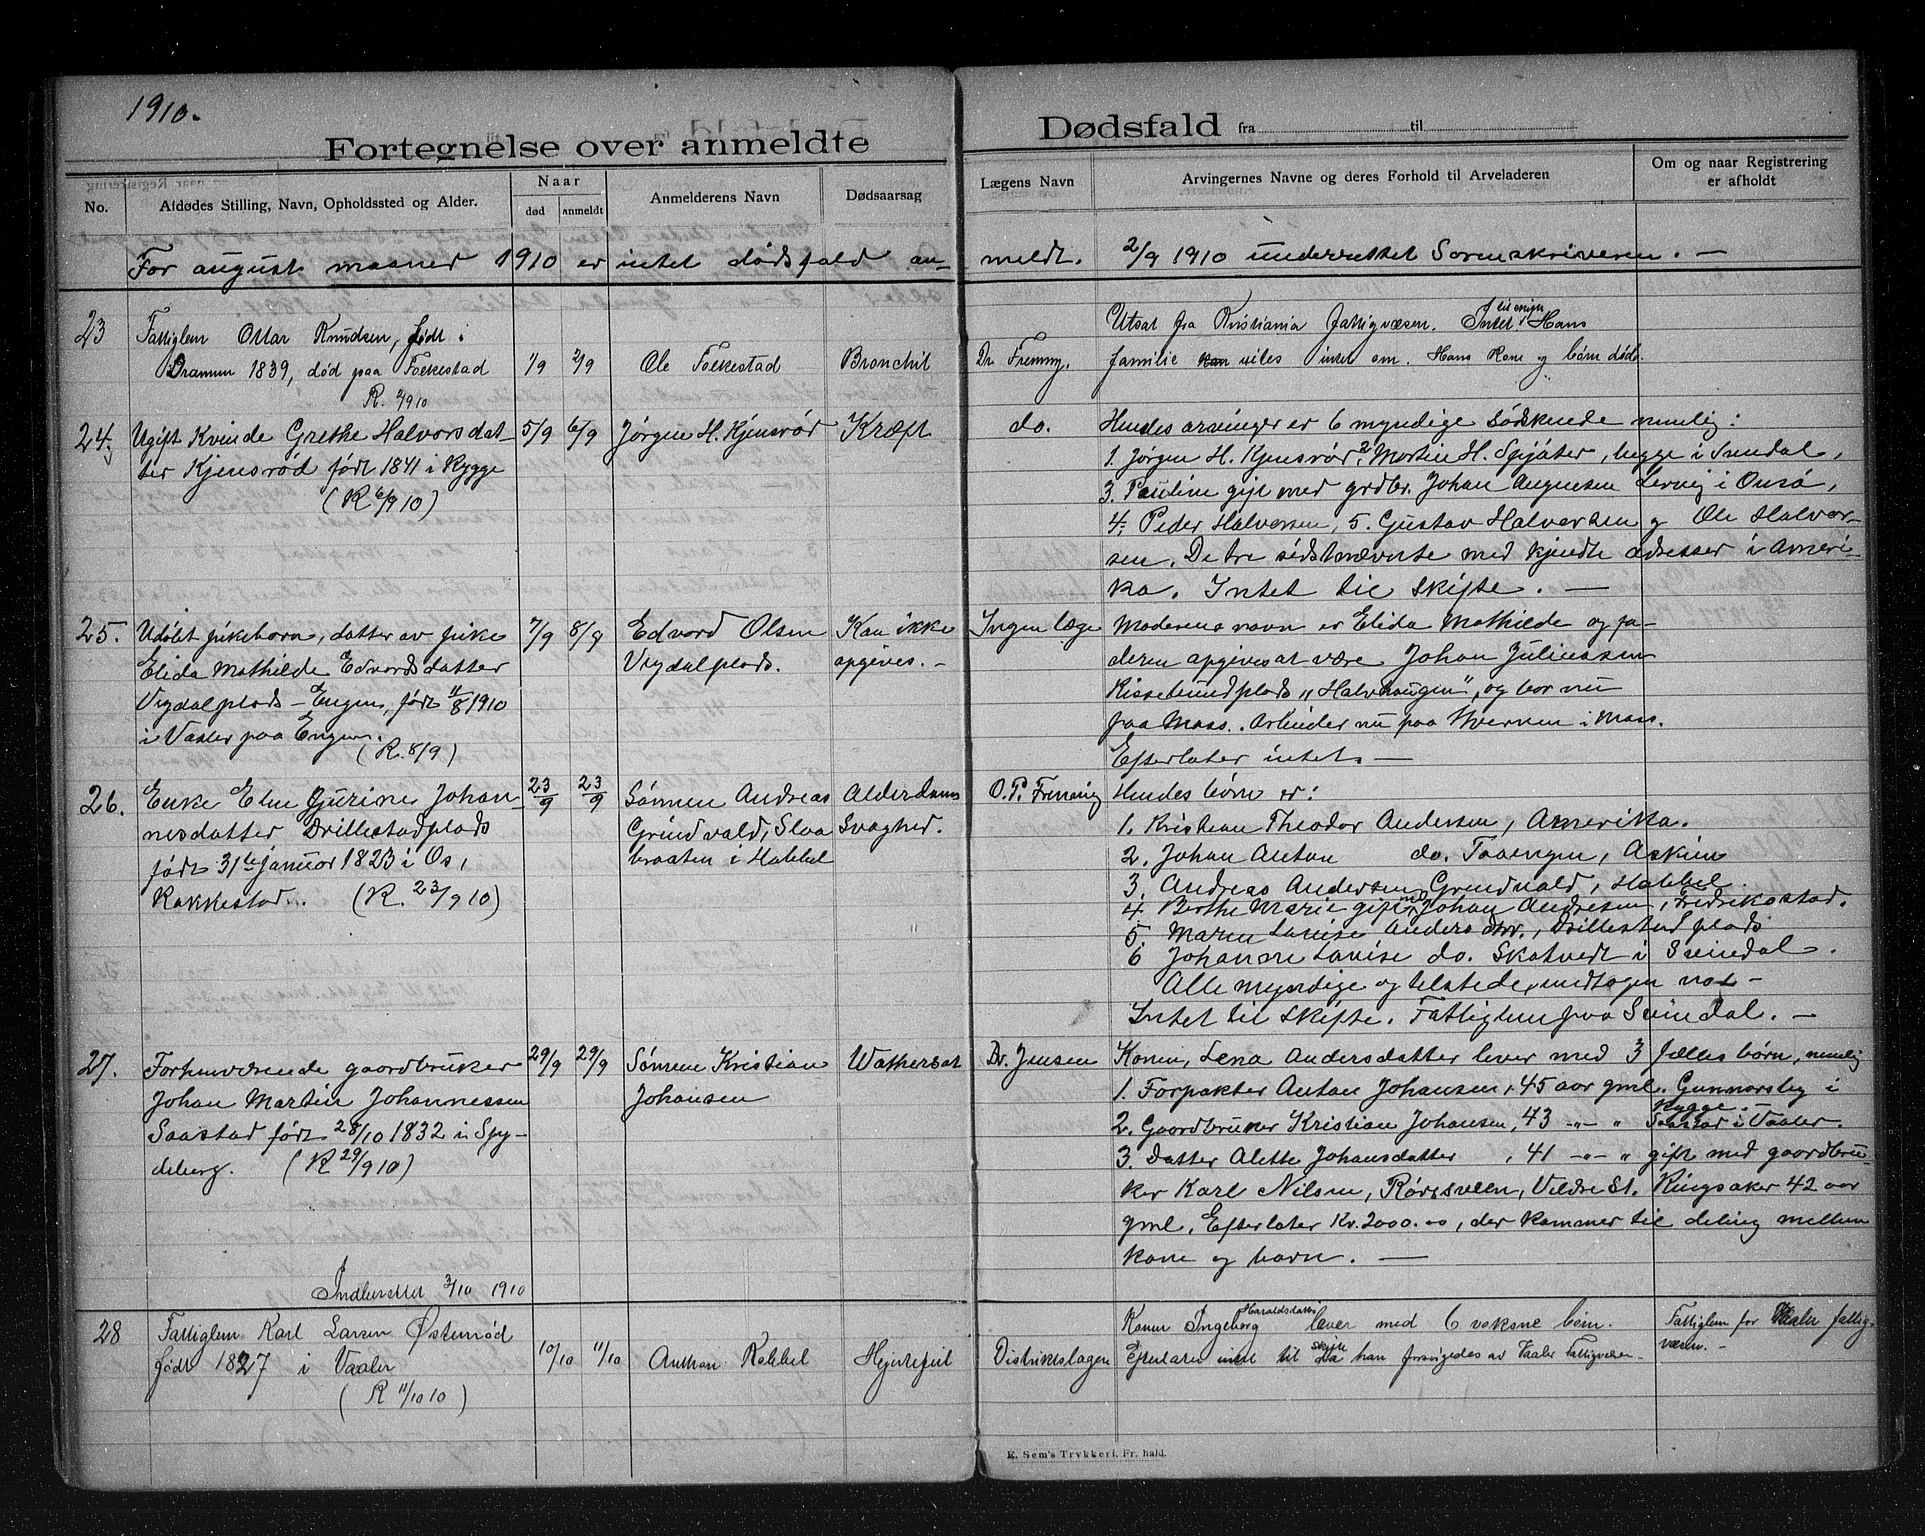 1910.
Fortegnelse over anmeldte Dødsfald fra til
No.
Afdødes Stilling, Navn, Opholdssted og Alder.
Naar
død anmeldt
Anmelderens Navn
Dødsaarsag
Lægens Navn
Arvingernes Navne og deres Forhold til Arveladeren
Om og naar Registrering
er afholdt
For august maaned 1910 er intet dødsfald an-
meldt. 2/9 1910 underrettet Sorenskriveren. —
23
Fattiglem Ottar Knudsen, født i
Drammen 1839, død paa Folkestad
R. 2/9 10
1/9 2/9
Ole Folkestad
Bronchit
Dr Fremmg.
Utsat fra Kristiania Fattigvæsen. Intet til skifte Hans
familie kan vites intet om. Hans Kone og børn døde.
24.
Ugift Kvinde Grethe Halvorsdat-
ter Kjensrød født 1841 i Rygge
(R 6/9 10)
5/9 6/9
Jørgen H. Kjensrød
Kræft
do.
Hendes arvinger er 6 myndige sødskende nemlig:
1. Jørgen H. Kjensrød, 2 Martin H. Spjøter, begge i Svindal,
3. Pauline gift med grdbr. Johan Augnesen Lervig i Onsø,
4. Peder Halversen, 5. Gustav Halversen og Ole Halvor-
sen. De tre sidstnævnte med kjendte adresser i Ameri-
ka. Intet til Skifte. —
25.
Udøbt pikebarn, datter av pike
Elida Mathilde Edvardsdatter
Vigdalplads - Engen, født 11/8 1910
i Vaaler paa Engen.
(R. 8/9)
7/9 8/9
Edvard Olsen
Vigdalplads.
Kan ikke
opgives. -
Ingen læge
Moderens navn er Elida Mathilde og fa-
deren opgives at være Johan Juliussen
Kissetundplads "Halvhaugen", og bor nu
paa Moss. Arbeider nu paa Hvernen i Moss.
Efterlater intet. —
26.
Enke Elen Gurine Johan
nesdatter Drillestadplads
født 31te januar 1823 i Os,
Rakkestad. (R. 23/9 10)
23/9 23/9
Sønnen Andreas
Grindvald, Slaa
braaten i Hobbel
Alderdoms
Svaghed.
O. P. Fremmig
Hendes børn er:
1. Kristian Theodor Andersen, Amerika.
2. Johan Anton do. Taaengen, Askim
3. Andreas Andersen Grindvald, Hobbel.
4 Berthe Marie gift med Johan Andresen, Fredrikastad.
5 Maren Lovise Andersdtr., Drillestad plads
6 Johanne Lovise do. Skatvedt i Svindal.
Alle myndige og tilstede, undtagen no 1 -
Intet til Skifte. Fattiglem paa Svindal. —
27.
Forhenværende gaardbruker
Johan Martin Johannessen
Saastad født 28/10 1832 i Spy-
deberg. (R 29/9 10)
Indberettet 3/10 1910
29/9 29/9
Sønnen Kristian
Johansen
Wathersot
Dr. Jensen
Konen, Lena Andersdatter lever med 3 fælles børn, nemlig
1. Forpakter Anton Johansen, 45 aar gml. Gunnarsby i
Rygge.
2. Gaardbruker Kristian Johansen, 43 -„- „ Saastad i Vaaler.
3. Datter Alette Johansdatter, 41 -„- „ gift med gaardbru-
ker Karl Nilsen, Rørsveen, Veldre St. Ringsaker 42 aar
gml. Efterlater Kr. 2000.00, der kommer til deling mellem
kone og barn. —
28
Fattiglem Karl Larsen Østenrød
født 1827 i Vaaler
(R 11/10 10)
10/10 11/10
Anthon Rabbel
Hjertefeil
Distriktslægen
Konen Ingeborg Haraldsdatter lever med 6 voksne børn.
Efterlater intet til skifte da han forsørgedes av Vaaler Fattigvæsen-
Fattiglem for Vaaler fattig-
væsen. -
E. Sem's Trykkeri, Fr. hald.